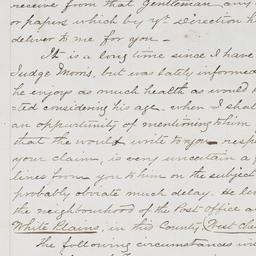 receive from that Gentleman any
or papers which by yr. Direction h
deliver to me for you —
It is a long time since I have
Judge Morris, but was lately informed
he enjoys as much health as would
=ted considering his age. when I shal
an oppurtunity of mentioning to him
that he would write to you resp
your claim, is very uncertain a f
lines from you to him on the subject
probably obviate much delay. He liv
the neighbourhood of the Post office a
White Plains, in this County (West Che
The following circumstances wi